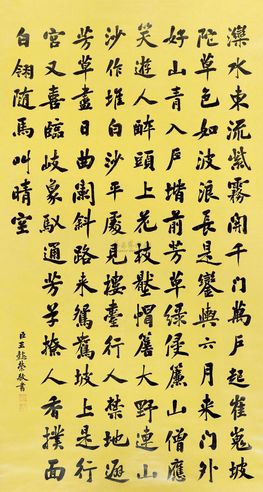 灤水東流紫霧開千門萬戶起崔嵬坡
陀草色如波浪長是鑾輿六月來門外
好山青入戶堦前芳草綠侵簾山僧應
笑遊人醉頭上花枝壓帽簷大野連山
沙作堆白沙平處見樓臺行人禁地避
芳草盡日曲闌斜路來鴛鴦坡上是行
宮又喜臨岐象馭通芳草撩人香撲面
白翎隨馬叫晴空
臣王懿榮敬書